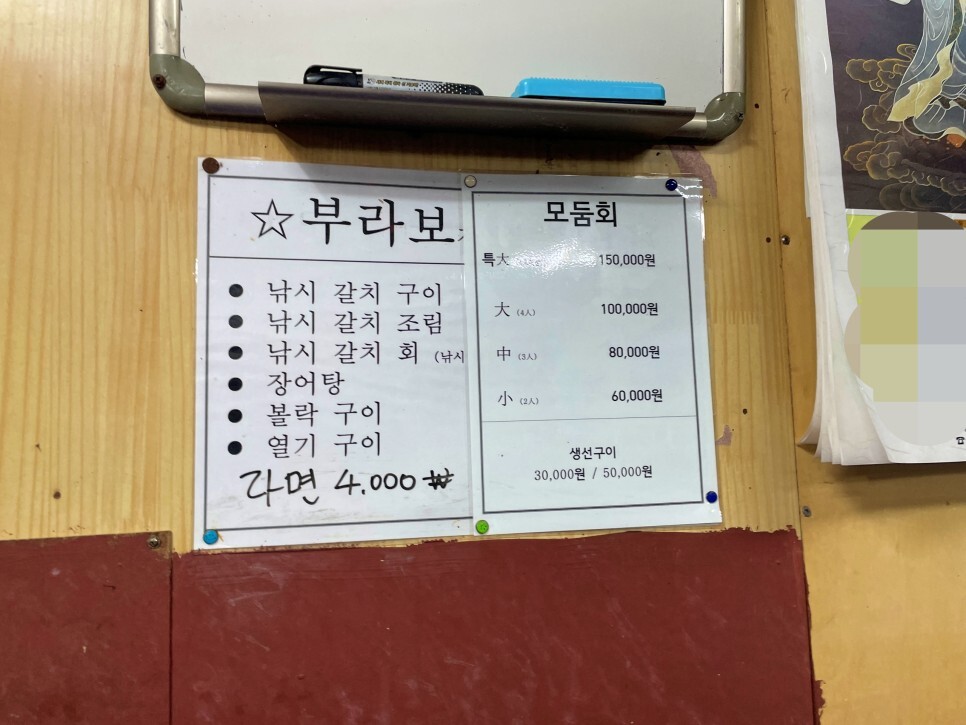 ☆부라보
● 낚시 갈치 구이
● 낚시 갈치 조림
● 낚시 갈치 회 (낚시
● 장어탕
● 볼락 구이
● 열기 구이
라면 4.000 ₩
모둠회
특大 150,000원
大 (4人) 100,000원
中 (3人) 80,000원
小 (2人) 60,000원
생선구이
30,000원 / 50,000원